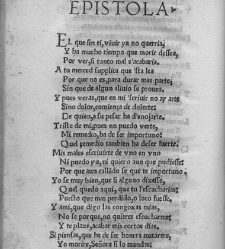 EPISTOLA.
EL que sin ti, viuir ya no querria,
Y ha mucho tiempo que morir dessea,
Por ver, si tanto mal s'acabaria.
A tu merced supplica que 'sta lea
Por que no es, para durar mas parte,
Sin que de algun aliuio se prouea.
Y pues veras, que en mi 'scriuir no ay arte
Sino dolor, comiença de dolerte:
De quien, a su pesar ha d'anojarte.
Triste de mi, pues no puedo verte,
Mi remedio, ha de ser importuno?
Que remedio tambien ha deser fuerte.
Mis males escriuirte de vno en vno
Ni puedo yo, ni quiero aun que pudiesse
Por que aun callado se que te importuno.
Yo se muy bien, que si alguno dixesse,
Qual quedo aqui, que tu l'escucharias:
Puesto que mas perdido, o loco fuesse,
Y ami, que digo las congoxas mias,
No se porque, no quieres escucharme:
Y te plaze, acabar mis cortos dias.
Si piensas, que ha de ser honrra matarme,
Yo morire, Señora si lo mandas